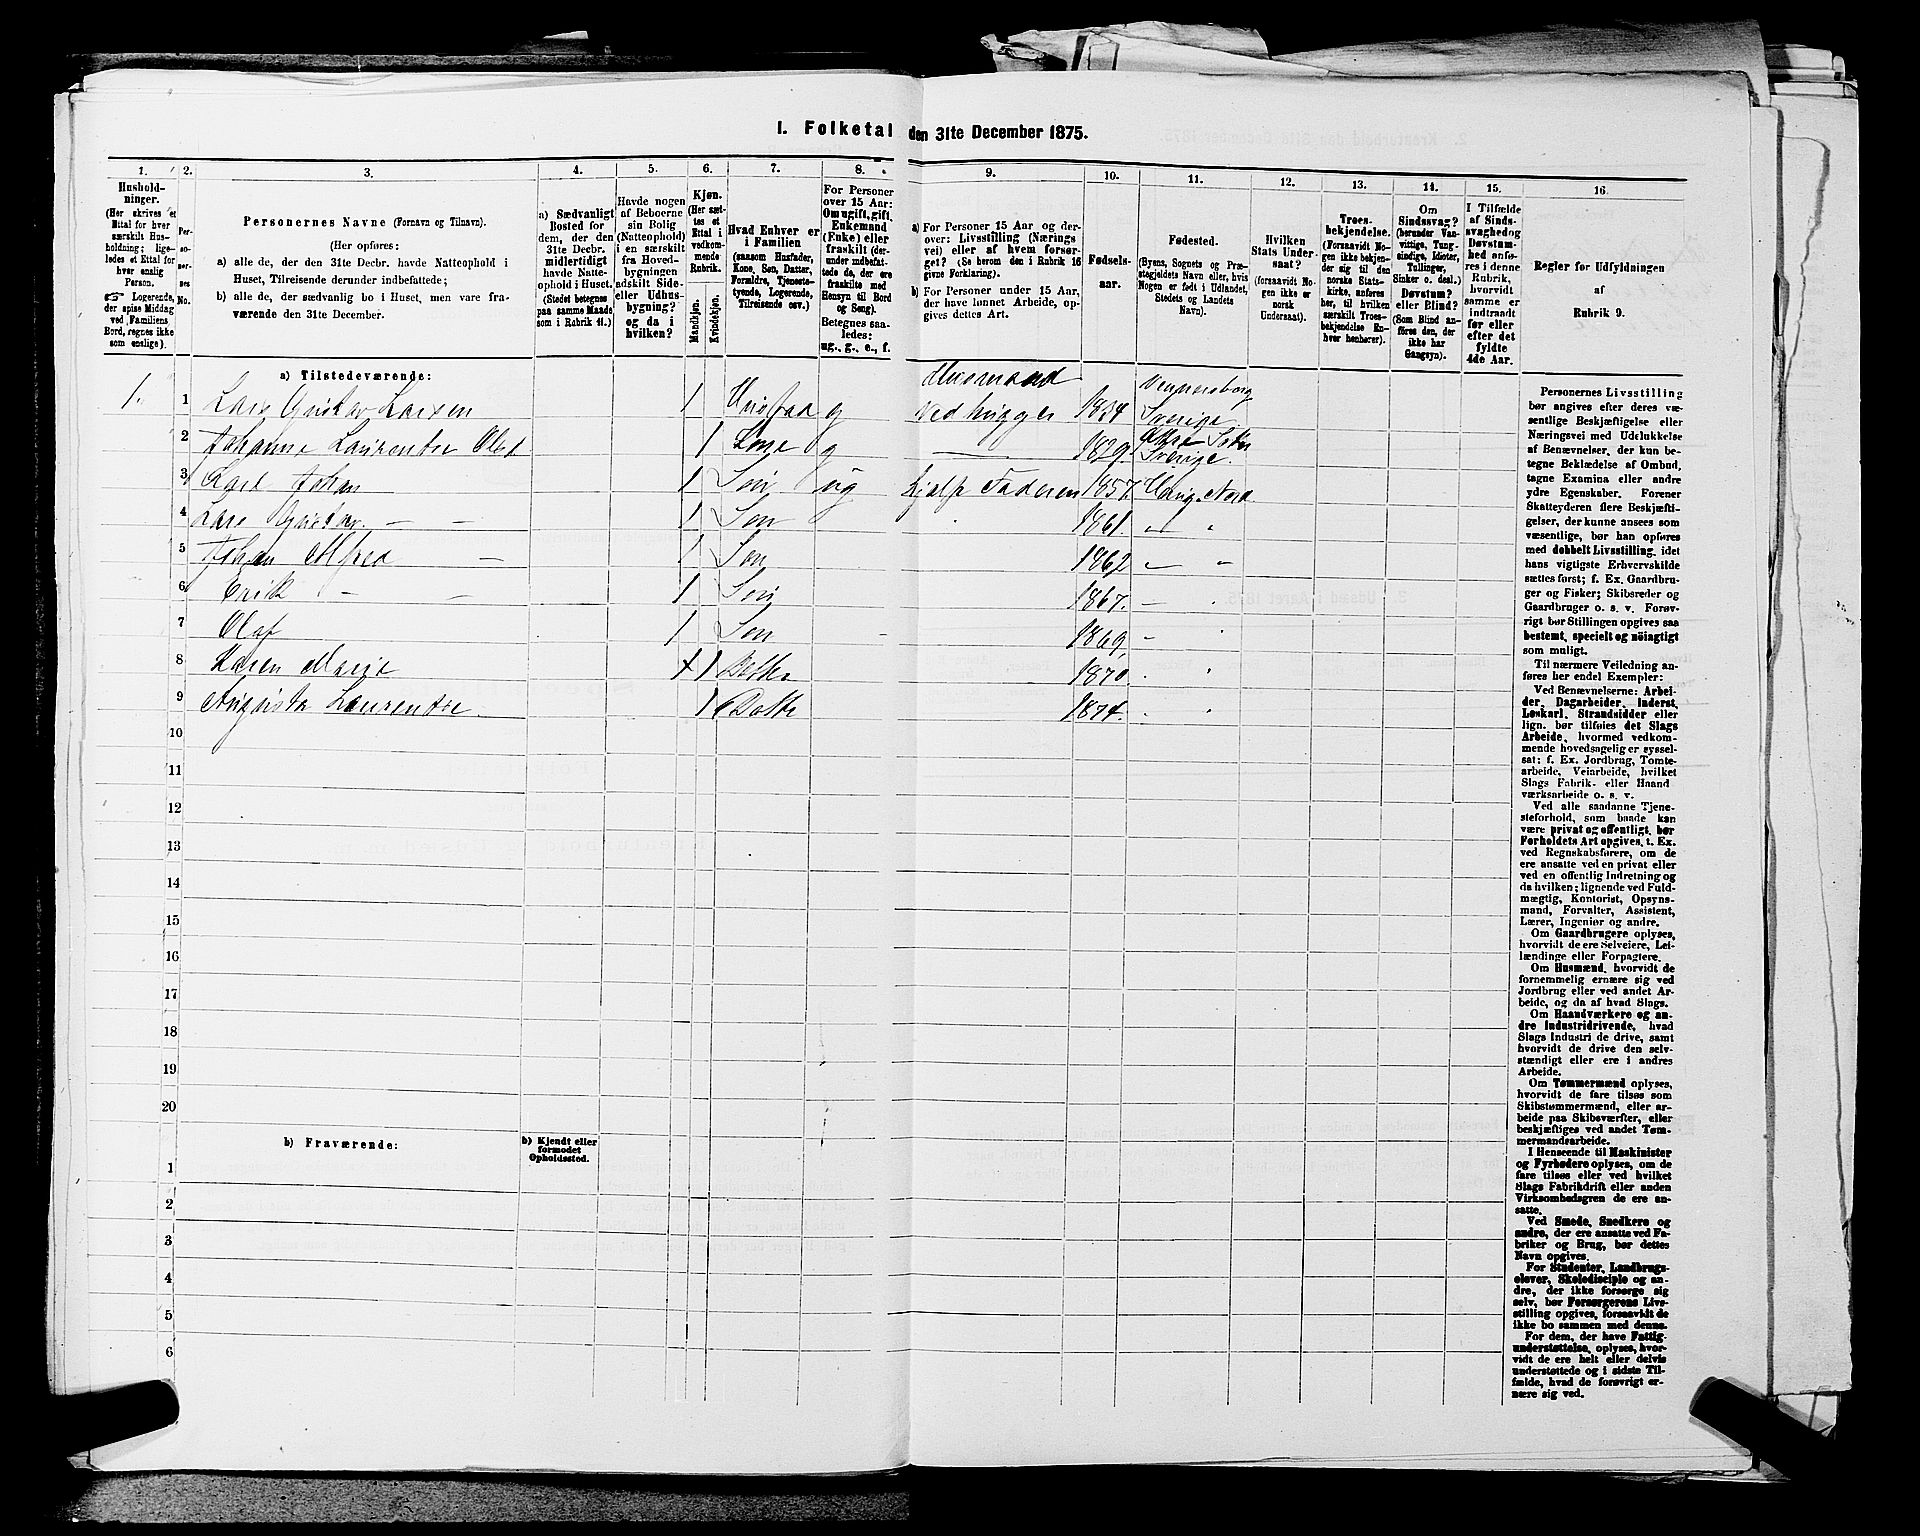 I. Folketal den 31te December 1875.
1.
2.
3.
4.
5.
6.
7.
8.
9.
10.
11.
12.
13.
14.
15.
16.
Hushold-
ninger.
(Her skrives et
Ettal for hver
særskilt Hus-
holdning; lige-
ledes et Ettal for
hver enslig
Person.
☞ Logerende,
der spise Middag
ved Familiens
Bord, regnes ikke
som enslige).
Per-
so-
ner-
nes
No.
Personernes Navne (Fornavn og Tilnavn).
(Her opføres:
a) alle de, der den 31te Decbr. havde Natteophold i
Huset, Tilreisende derunder indbefattede;
b) alle de, der sædvanlig bo i Huset, men vare fra-
værende den 31te December.
a) Sædvanligt
Bosted for
dem, der den
31te Decbr.
midlertidigt
havde Natte-
ophold i Huset.
(Stedet betegnes
paa samme Maade
som i Rubrik 11.)
Havde nogen
af Beboerne
sin Bolig
(Natteophold)
i en særskilt
fra Hoved-
bygningen
adskilt Side-
eller Udhus-
bygning?
og da i
hvilken?
Kjøn.
(Her sæt-
tes et
Ettal i
vedkom-
mende
Rubrik.
Mandkjøn.
Kvindekjøn.
Hvad Enhver er
i Familien
(saasom Husfader,
Kone, Søn, Datter,
Forældre, Tjeneste-
tyende, Logerende,
Tilreisende osv.)
For Personer
over 15 Aar:
Om ugift, gift,
Enkemand
(Enke) eller
fraskilt (der-
under indbefat-
tede de, der ere
fraskilte med
Hensyn til Bord
og Seng).
Betegnes saa-
ledes:
ug., g., e., f.
a) For Personer 15 Aar og der-
over: Livsstilling (Nærings
vei) eller af hvem forsør-
get? (Se herom den i Rubrik 16
givne Forklaring).
b) For Personer under 15 Aar,
der have lønnet Arbeide, op-
gives dettes Art.
Fødsels-
aar.
Fødested.
(Byens, Sognets og Præ-
stegjeldets Navn eller, hvis
Nogen er født i Udlandet,
Stedets og Landets
Navn).
Hvilken
Stats Under-
saat?
(forsaavidt No-
gen ikke er
norsk
Undersaat).
Troes-
bekjendelse.
(Forsaavidt No-
gen ikke bekjen-
der sig til den
norske Stats-
kirke, anføres
her, til hvilken
særskilt Troes-
bekjendelse En-
hver henhører).
Om
Sindssvag?
(herunder Van-
vittige, Tung-
sindige, Idioter,
Tullinger,
Sinker o. desl.)
Døvstum?
eller Blind?
(Som Blind an-
føres den, der
ikke har
Gangsyn).
I Tilfælde
af Sinds-
svaghed og
Døvstum-
hed anfø-
res i denne
Rubrik,
hvorvidt
samme er
indtraadt
før eller
efter det
fyldte
4de Aar.
Regler for Udfyldningen
af
Rubrik 9.
a) Tilstedeværende:
Huusmand
1. 1 Lars Gustav Larsen 1 Husfaa g Vedhugger 1834 Vennersborg Sverige
2 Johanne Laurentse Olsd 1 Kone g — 1829. Sverige.
3 Carl Johan 1 Søn ug hjelp Faderen 1857. Haug. Nord
4 Lars Gustav. — — 1 Søn 1861. „ „
5 Johan Alfred — 1 Søn 1862 „ „
6 Erik — — 1 Søn 1867. — „
7 Olaf 1 Søn 1869. — „
8 Karen Marie 1 Datter 1870. „
9 Augusta Laurentse. 1 Datt 1874. „
10
11
12
13
14
15
16
17
18
19
20
b) Fraværende:
b) Kjendt eller
formodet
Opholdssted.
1
2
3
4
5
6
Personernes Livsstilling
bør angives efter deres væ-
sentlige Beskjæftigelse eller
Næringsvei med Udelukkelse
af Benævnelser, der kun be-
tegne Beklædelse af Ombud,
tagne Examina eller andre
ydre Egenskaber. Forener
Skatteyderen flere Beskjæfti-
gelser, der kunne ansees som
væsentlige, bør han opføres
med dobbelt Livsstilling, idet
hans vigtigste Erhvervskilde
sættes først; f. Ex. Gaardbru-
ger og Fisker; Skibsreder og
Gaardbruger o. s. v. Forøv-
rigt bør Stillingen opgives saa
bestemt, specielt og nöiagtigt
som muligt.
Til nærmere Veiledning an-
føres her endel Exempler:
Ved Benævnelserne: Arbei-
der, Dagarbeider, Inderst,
Løskarl, Strandsidder eller
lign. bør tilføies det Slags
Arbeide, hvormed vedkom-
mende hovedsagelig er syssel-
sat; f. Ex. Jordbrug, Tomte-
arbeide, Veiarbeide, hvilket
Slags Fabrik- eller Haand
værksarbeide o. s. v.
Ved alle saadanne Tjene-
steforhold, som baade kan
være privat og offentligt, bør
Forholdets Art opgives, t. Ex.
ved Regnskabsførere, om de
ere ansatte ved en privat eller
ved en offentlig Indretning og
da hvilken; lignende ved Fuld-
mægtig, Kontorist, Opsyns-
mand, Forvalter, Assistent,
Lærer, Ingeniør og andre.
Om Gaardbrugere oplyses,
hvorvidt de ere Selveiere, Lei-
lændinge eller Forpagtere.
Om Husmænd, hvorvidt de
fornemmelig ernære sig ved
Jordbrug eller ved andet Ar-
beide, og da af hvad Slags.
Om Haandværkere og an-
dre Industridrivende, hvad
Slags Industri de drive, samt
hvorvidt de drive den selv-
stændigt eller ere i andres
Arbeide.
Om Tømmermænd oplyses,
hvorvidt de fare tilsøs som
Skibstømmermænd, eller ar-
beide paa Skibsværfter, eller
beskjæftiges ved andet Tøm-
mermandsarbeide.
I Henseende til Maskinister
og Fyrbødere oplyses, om de
fare tilsøs eller ved hvilket
Slags Fabrikdrift eller anden
Virksomhedsgren de ere an-
satte.
Ved Smede, Snedkere og
andre, der ere ansatte ved Fa-
briker og Brug, bør dettes
Navn opgives.
For Studenter, Landbrugs-
elever, Skoledisciple og an-
dre, der ikke forsørge sig
selv, bør Forsørgerens Livs-
stilling opgives, forsaavidt de
ikke bo sammen med denne.
For dem, der have Fattig-
understøttelse, oplyses, hvor-
vidt de ere helt eller delvis
understøttede og i sidste Til-
fælde, hvad de forøvrigt er-
nære sig ved.